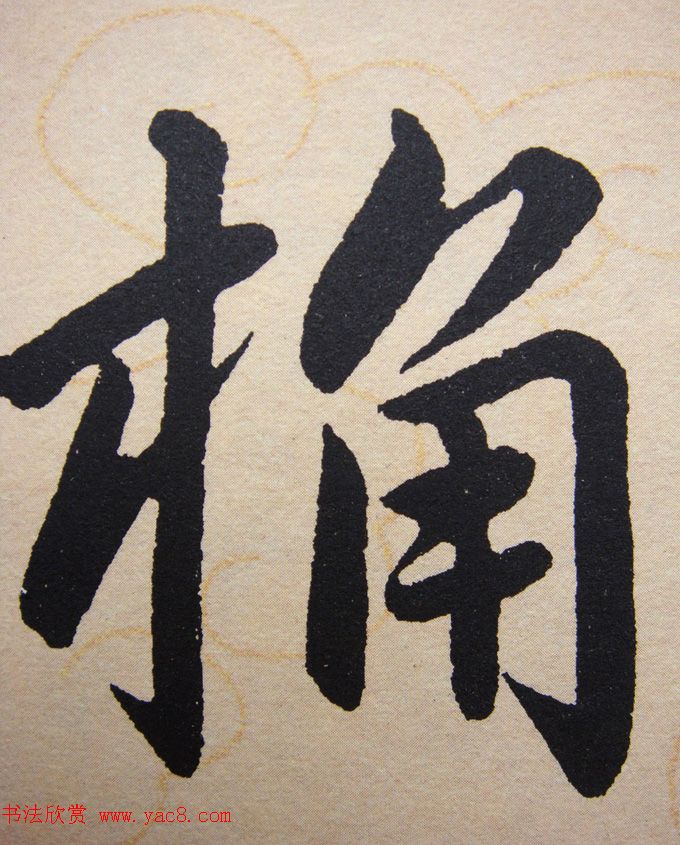 桷
书法欣赏 www.yac8.com